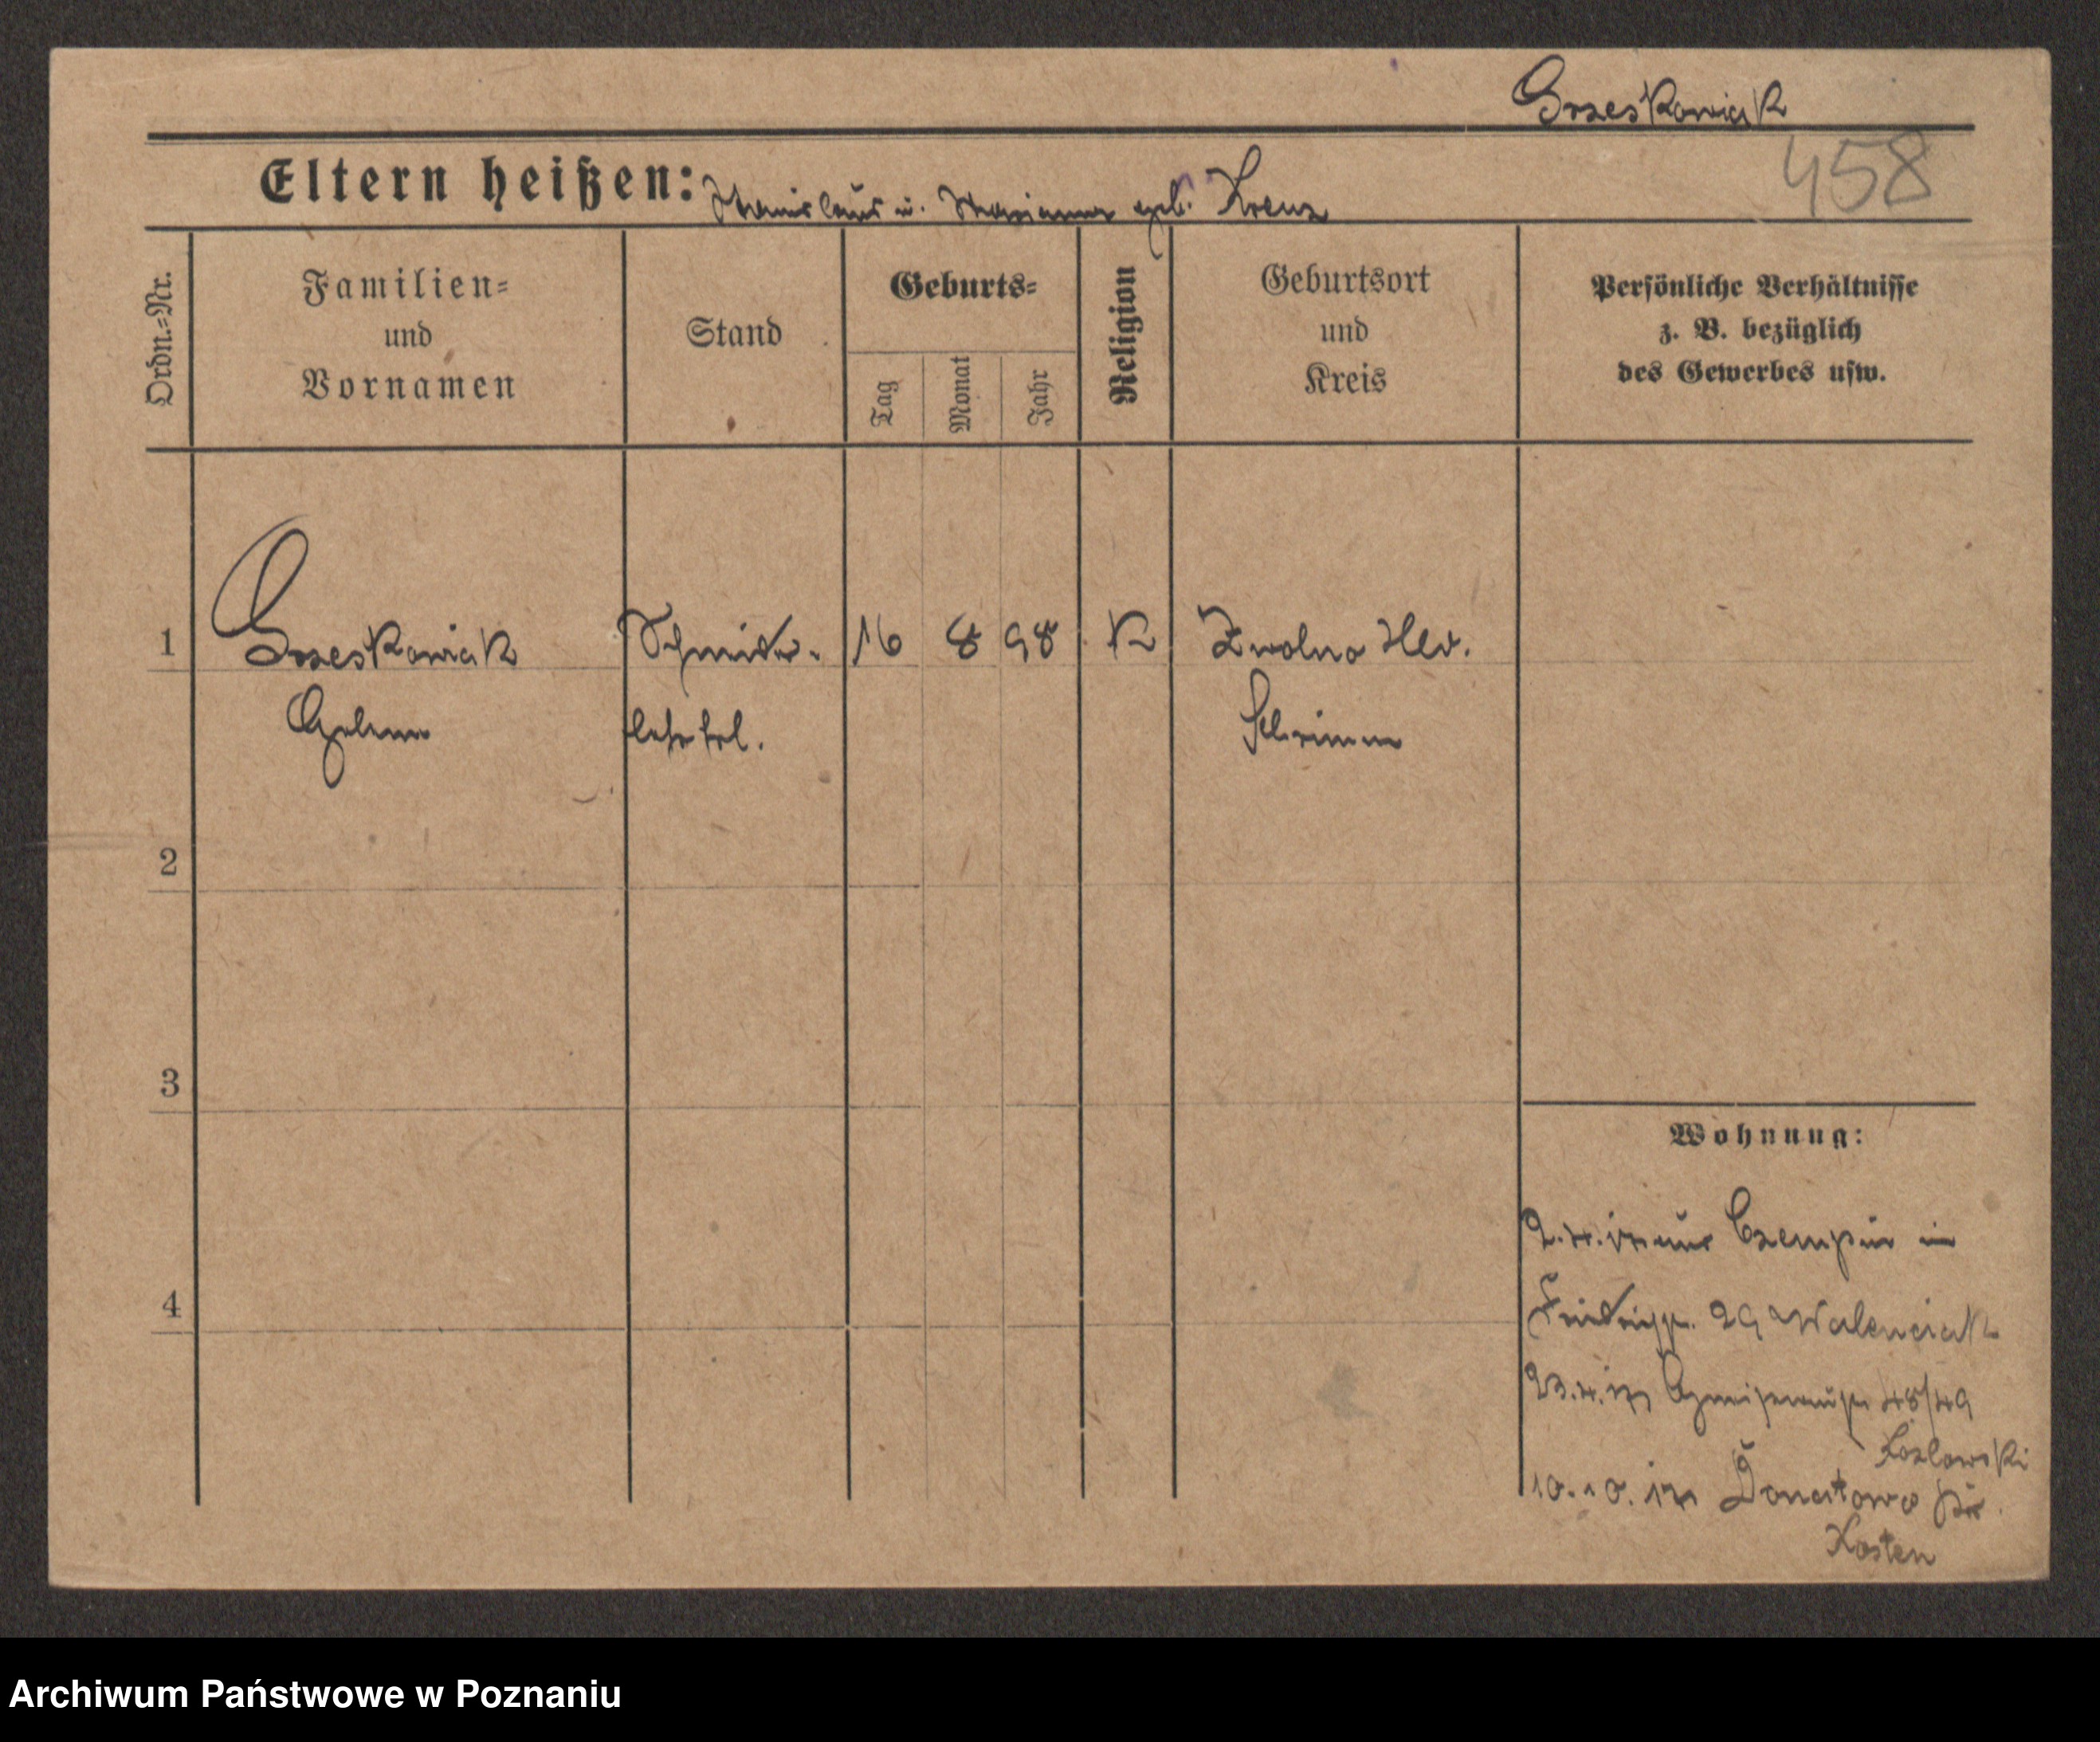 Grzeskowiak
458
Eltern heißen: Stanislaus u. Marianna geb. Krenz
Ordn.=Nr.
Familien=
und
Vornamen
Stand
Geburts=
Tag
Monat
Jahr
Religion
Geburtsort
und
Kreis
Persönliche Verhältnisse
z. B. bezüglich
des Gewerbes usw.
1
Grzeskowiak
Schmiede-
16
8
98
K
Zwolno
lehrl.
Schrimm
2
3
Wohnung:
aus Czempin in
4
29 Walenciak
23.4.17 48/49
Kozlowski
10.10.17 Donatowo Kr.
Kosten
Archiwum Państwowe w Poznaniu